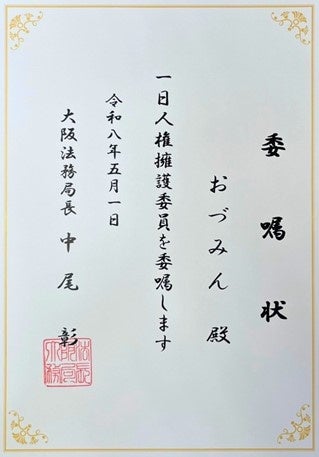 委嘱状
おづみん殿
一日人権擁護委員を委嘱します
令和八年五月一日
大阪法務局長 中尾 彰